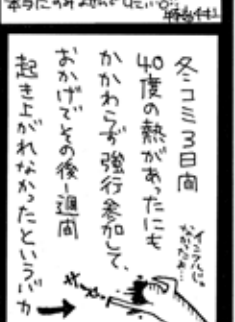 冬コミ3日間
40度の熱があったにも
かかわらず強行参加して、
おかげでその後1週間
起き上がれなかったというバカ
インフルじゃ
なかったよ…